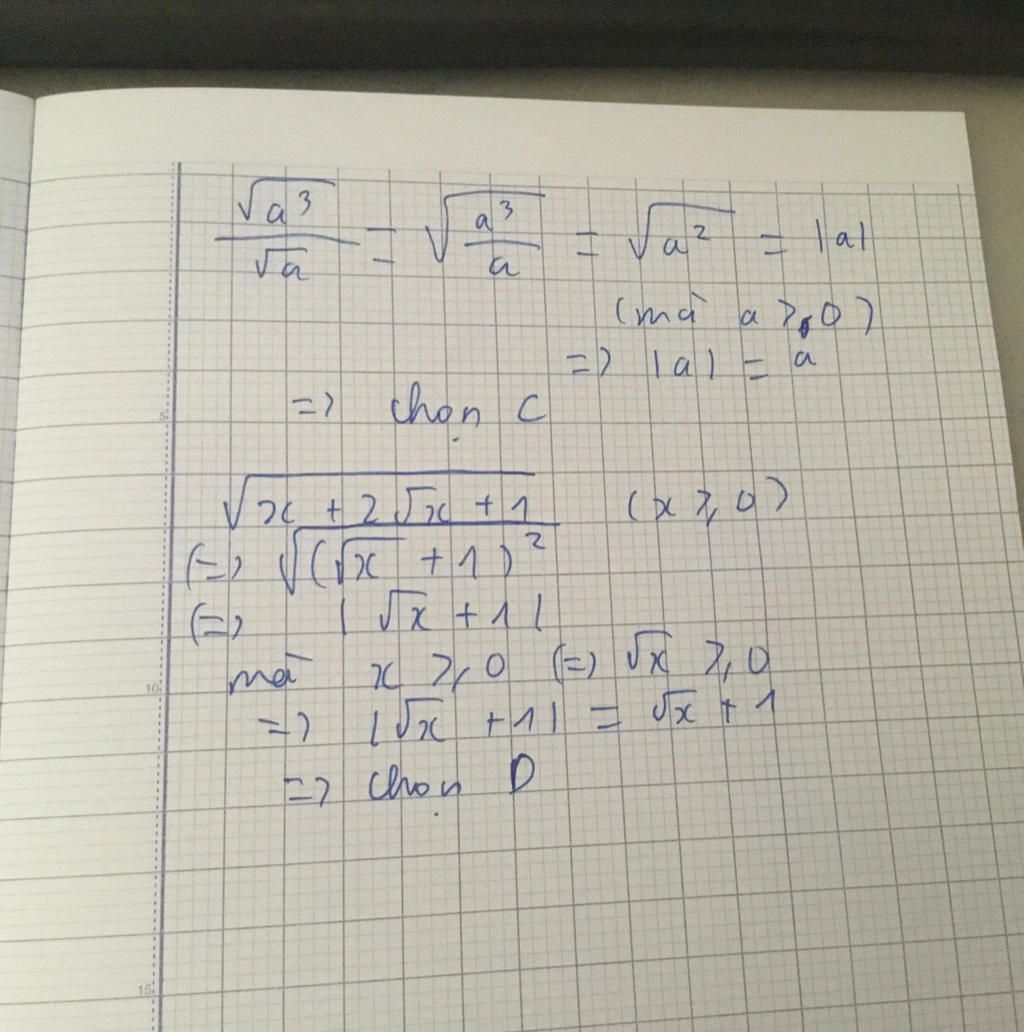 √a³/√a = √(a³/a) = √a² = |a|
(mà a ⩾ 0)
=> |a| = a
=> chọn C
√(x + 2√x + 1) (x ⩾ 0)
(=) √(√x + 1)²
(=) |√x + 1|
mà x ⩾ 0 (=) √x ⩾ 0
=> |√x + 1| = √x + 1
=> chọn D
5
10
15